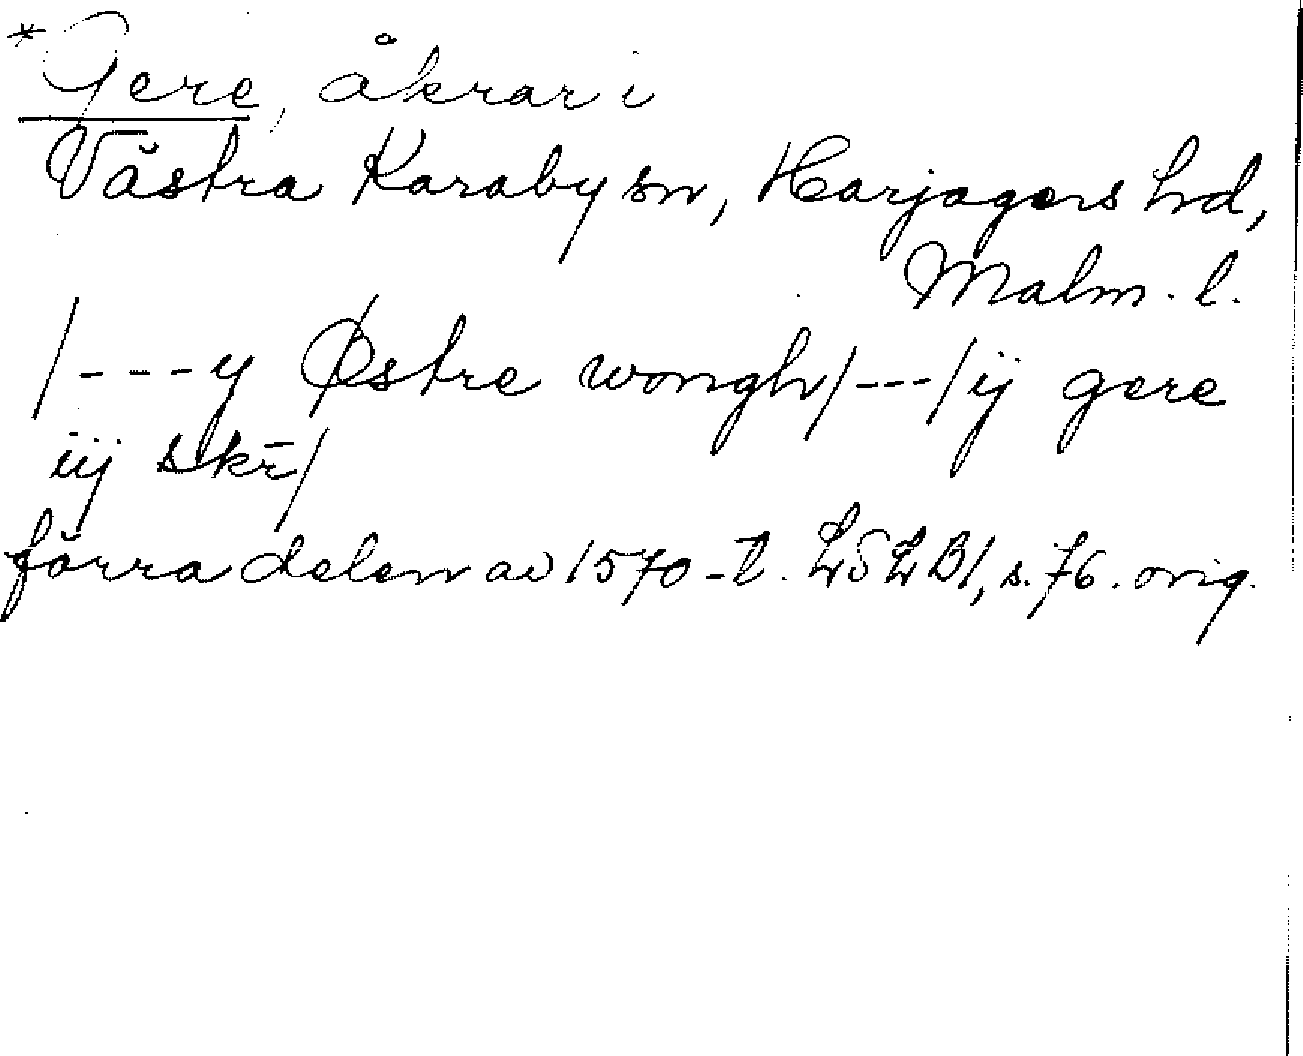 *Gere, åkrar i
Västra Karaby sn, Harjagers hd,
Malm. l.
/---y Østre wongh/---/ij gere
iij skr̄/
förra delen av 1570-t. LSLB1, s. 76. orig.